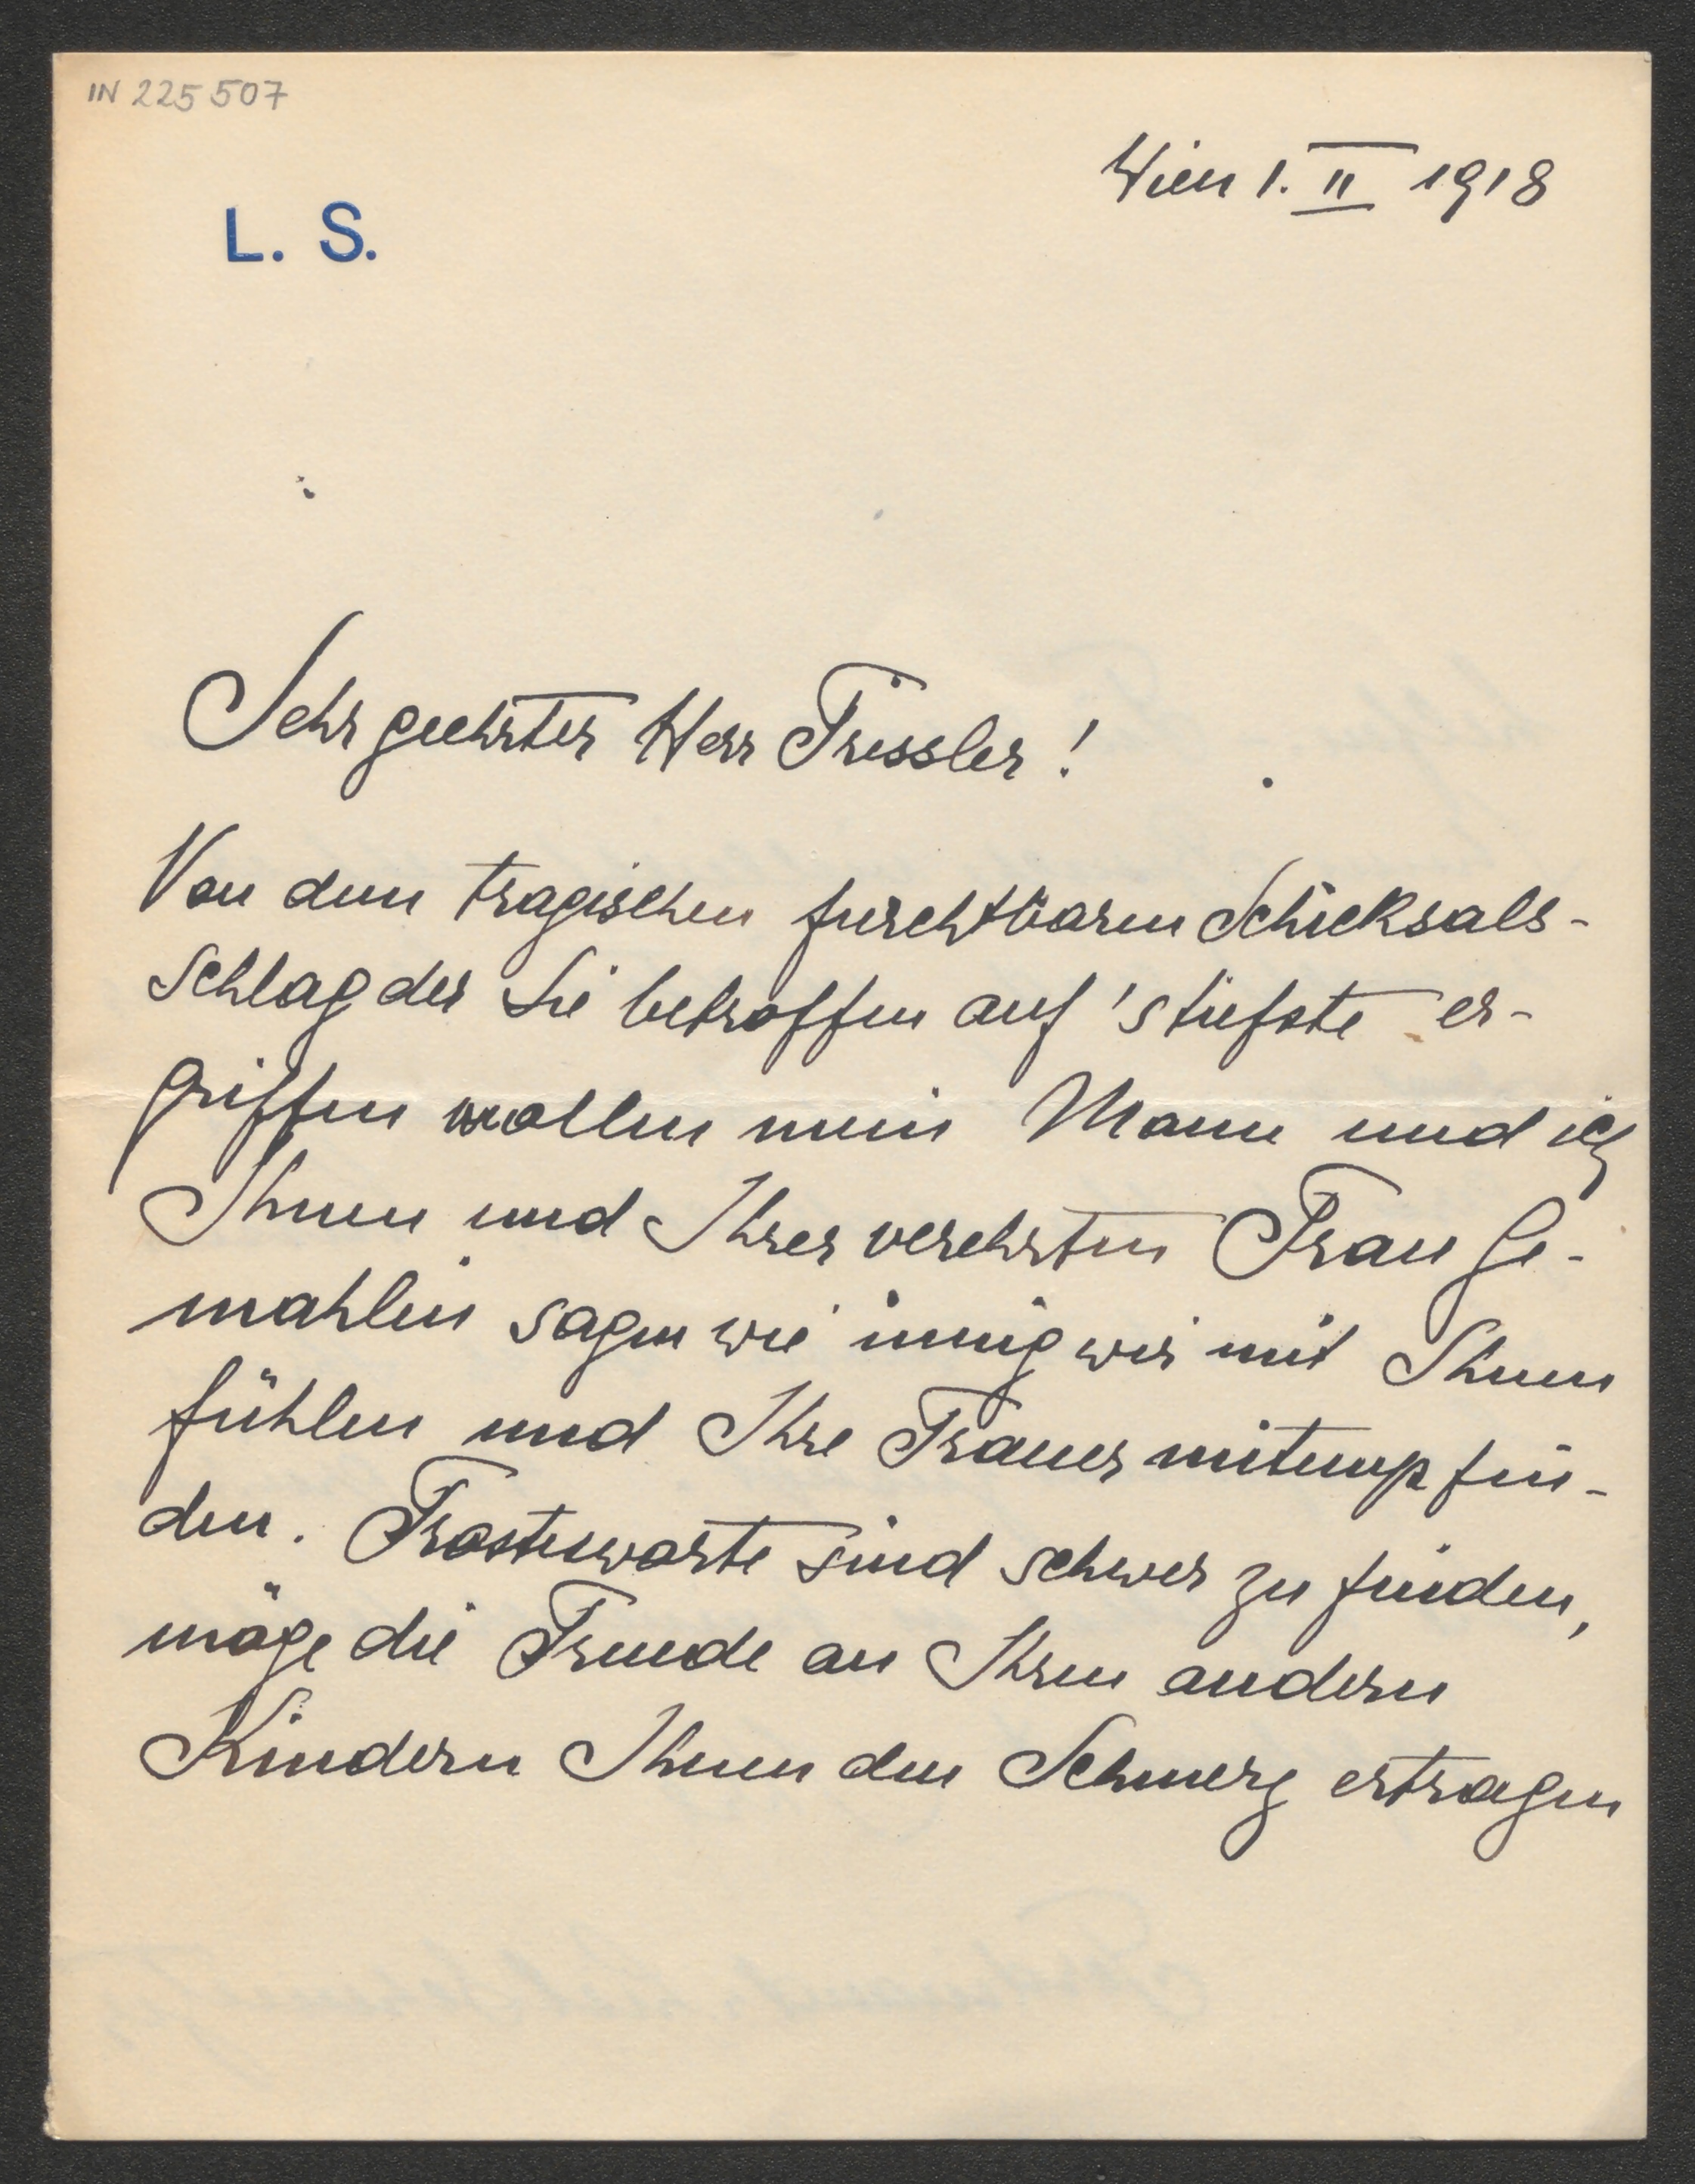 IN 225507
Wien 1. II 1918
L. S.
Sehr geehrter Herr Tressler!
Von dem tragischen furchtbaren Schicksals-
schlag der Sie betroffen auf's tiefste er-
griffen wollen mein Mann und ich
Ihnen und Ihrer verehrten Frau Ge-
mahlin sagen wie innig wir mit Ihnen
fühlen und Ihre Trauer mitempfin-
den. Trostesworte sind schwer zu finden,
möge die Freude an Ihren andern
Kindern Ihnen den Schmerz ertragen